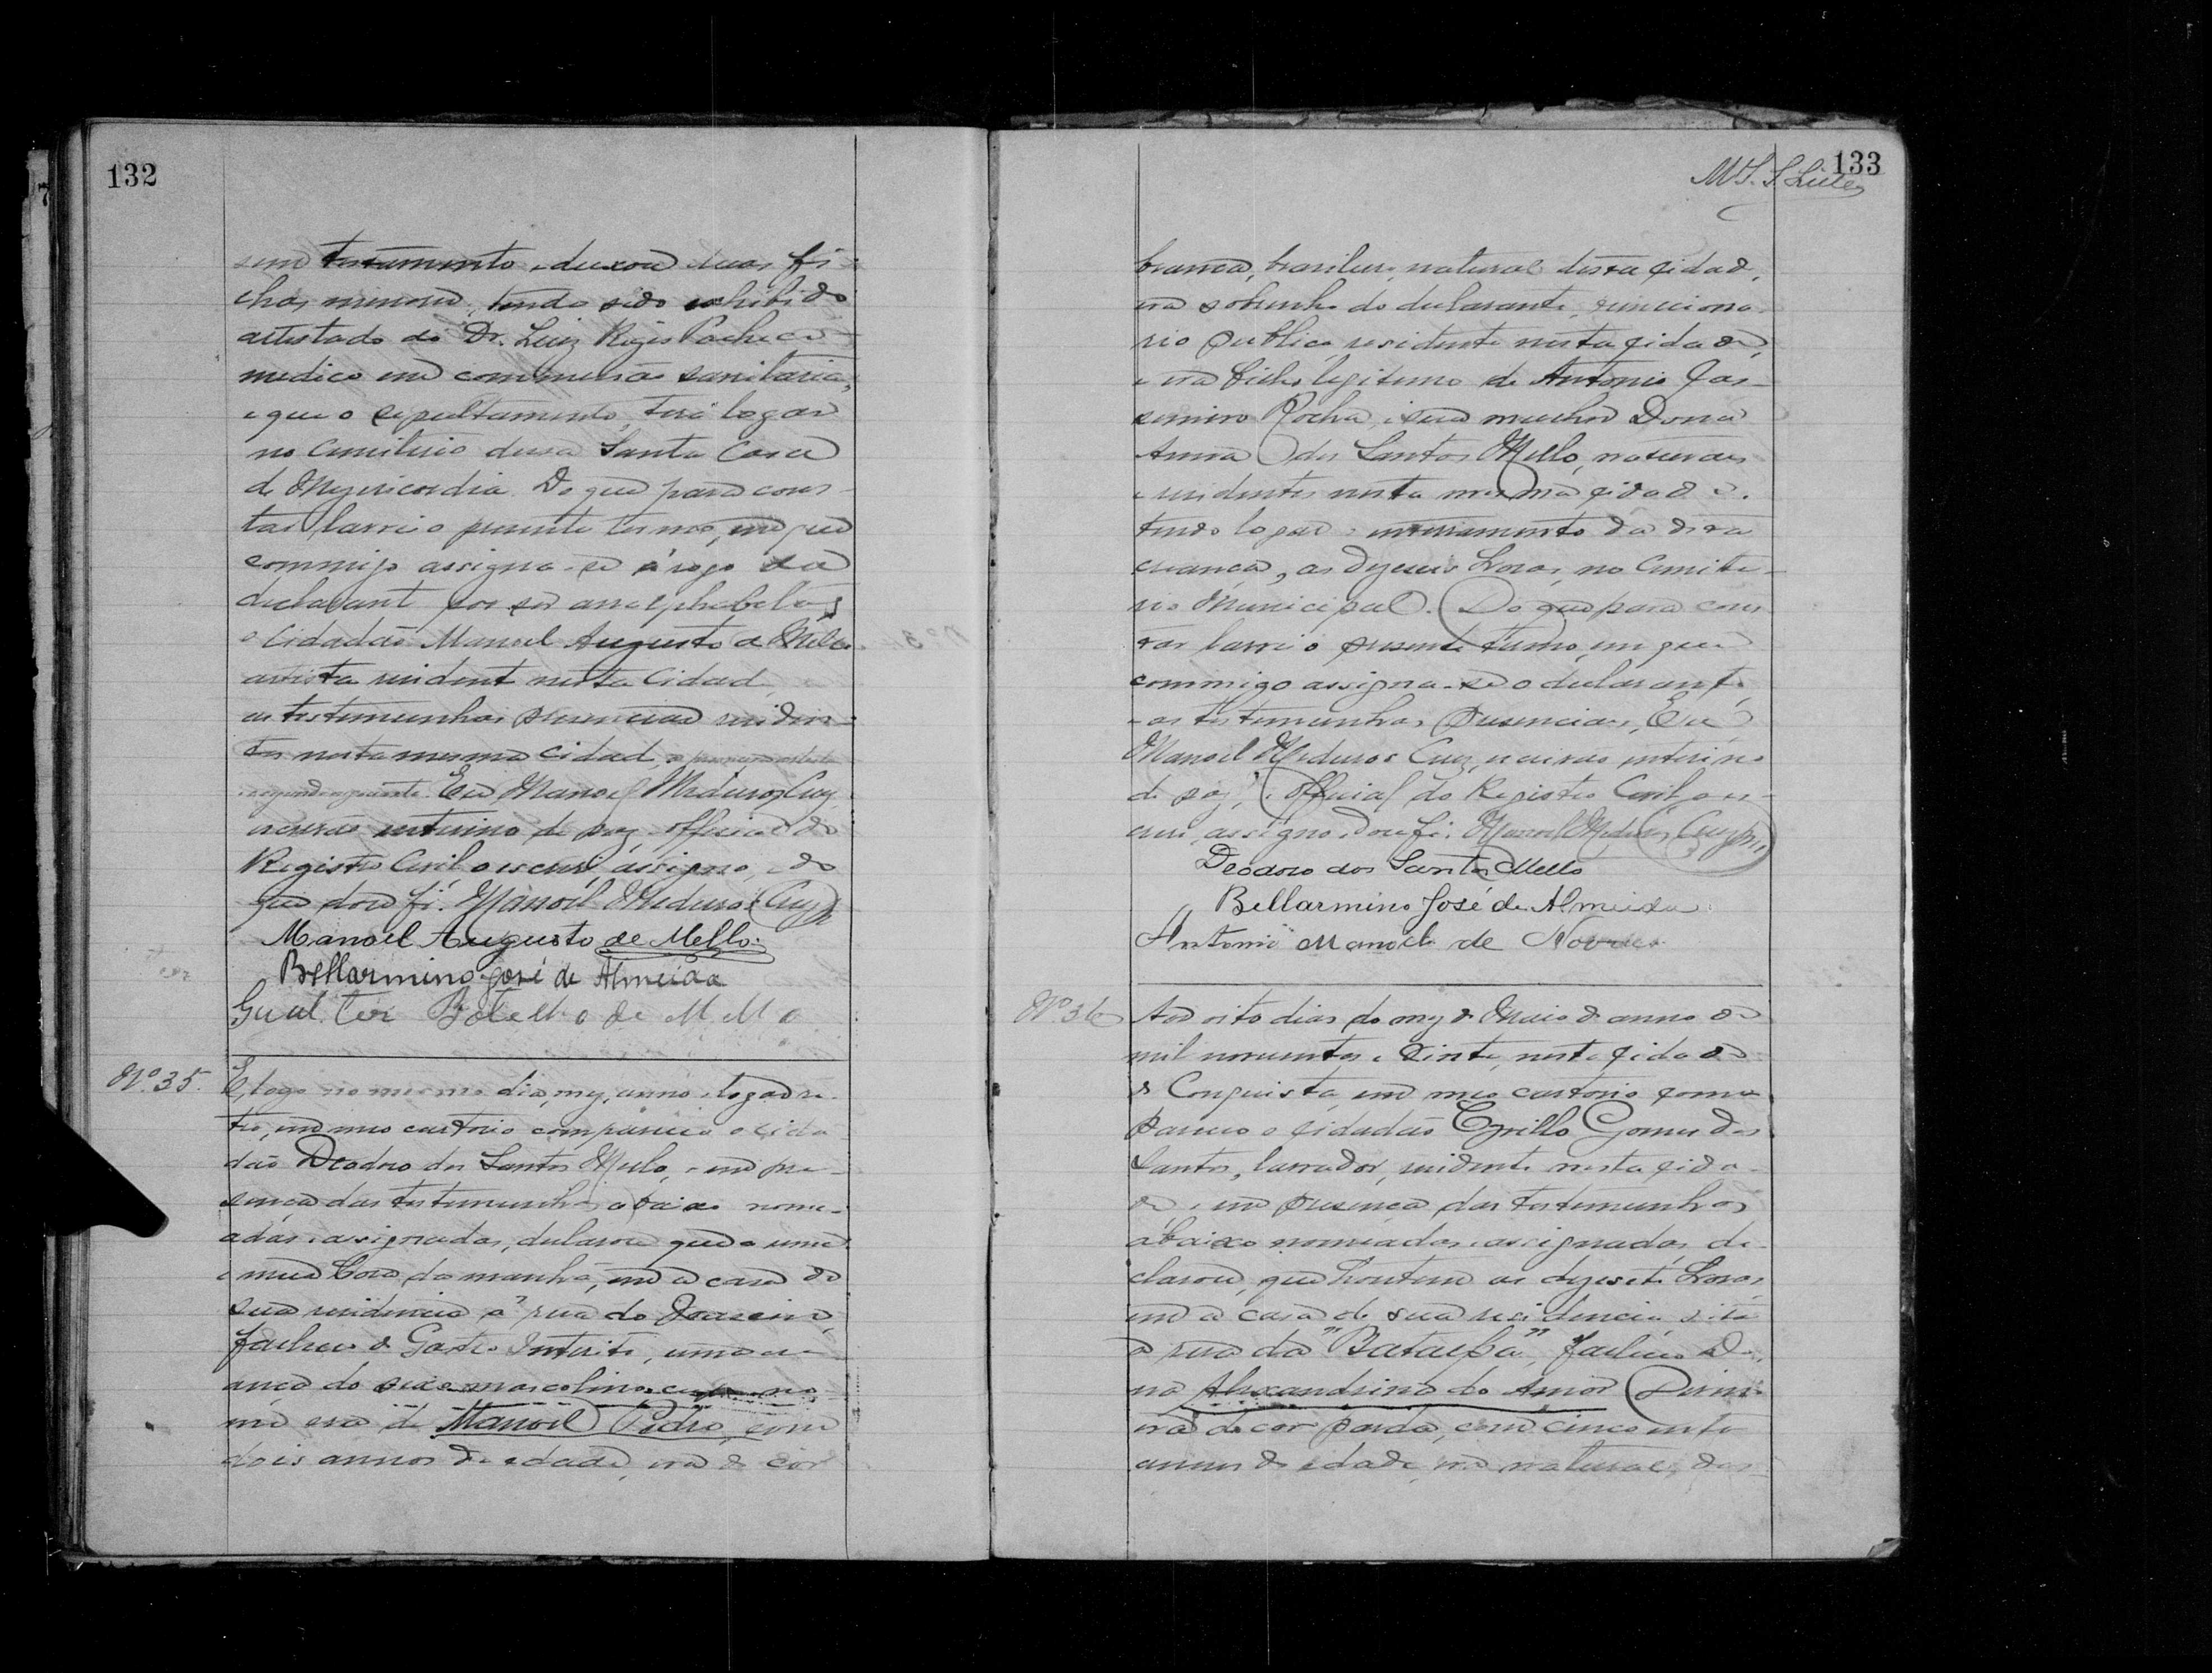 132
sem testamento e deixou duas fi-
lhas menores, tendo sido exhibido
attestado do Dr. Luiz Regis Pacheco
medico em commissão sanitaria,
e que o sepultamento, terá logar
no Cemiterio dessa Santa Casa
de Mizericordia. Do que para cons-
tar, lavrei o presente termo, em que
commigo assigna-se á rogo da
declarant por ser analphabeta,
o Cidadão Manoel Augusto de Mello
artista resident nesta Cidad
as testemunhas presenciaes residen-
tes nesta mesma cidad,
Eu Manoel Medeiros Cruz
escrivão interino de paz, official do
Registro Civil, o escrevi, assigno, do
que dou fé. Manoel Medeiros Cruz
Manoel Augusto de Mello.
Bellarmino José de Almeida
Gualter Botelho de Mello
Nº 35.
E, logo no mesmo dia, mez, anno e logar re-
tro, em meu cartorio compareceu o cida
dão Deodoro dos Santos Mello, e em pre-
sença das testemunhas abaixo nome-
adas e assignadas, declarou que a uma
e meia hora da manhã, em a casa de
sua residencia á rua do
falleceu de Gastro Interite, uma cre-
ança do sexo masculino, cujo no-
me era de Manoel Pedro, com
dois annos de edade, era de côr
133
branca, brasileira, natural desta cidad,
era sobrinho do declarante, funcciona-
rio publico, residente nesta cidade,
e era filho legitimo de Antonio Cas-
semiro Rocha, e sua mulher Dona
Anna dos Santos Mello, naturaes
e residentes nesta mesma cidade.
tendo logar o enterramento da dita
creança, as dezeseis horas, no Cemite-
rio Municipal. Do que para cons
tar lavrei o presente termo, em que
commigo assigna-se o declarante,
e as testemunhas presenciaes, Eu
Manoel Medeiros Cruz, escrivão interino
de paz, e official do Registro Civil o es-
crevi, assigno, dou fé. Manoel Medeiros Cruz
Deodoro dos Santos Mello
Bellarmino José de Almeida
Antonio Manoel de Novaes
Nº 36
Aos oito dias do mez de Maio do anno de
mil novecentos e vinte, nesta cidade
de Conquista, em meu cartorio com-
pareceu o cidadão Cyrillo Gomes dos
Santos, lavrador, residente nesta cida-
de, e em presença das testemunhas
abaixo nomeadas e assignadas, de-
clarou, que hontem as dezesete horas,
em a casa de sua residencia, sita
a rua da "Batalha", falleceu Do-
na Alexandrina do Amor Divin
era de cor parda, com cincoenta
annos de edade, era natural, des-